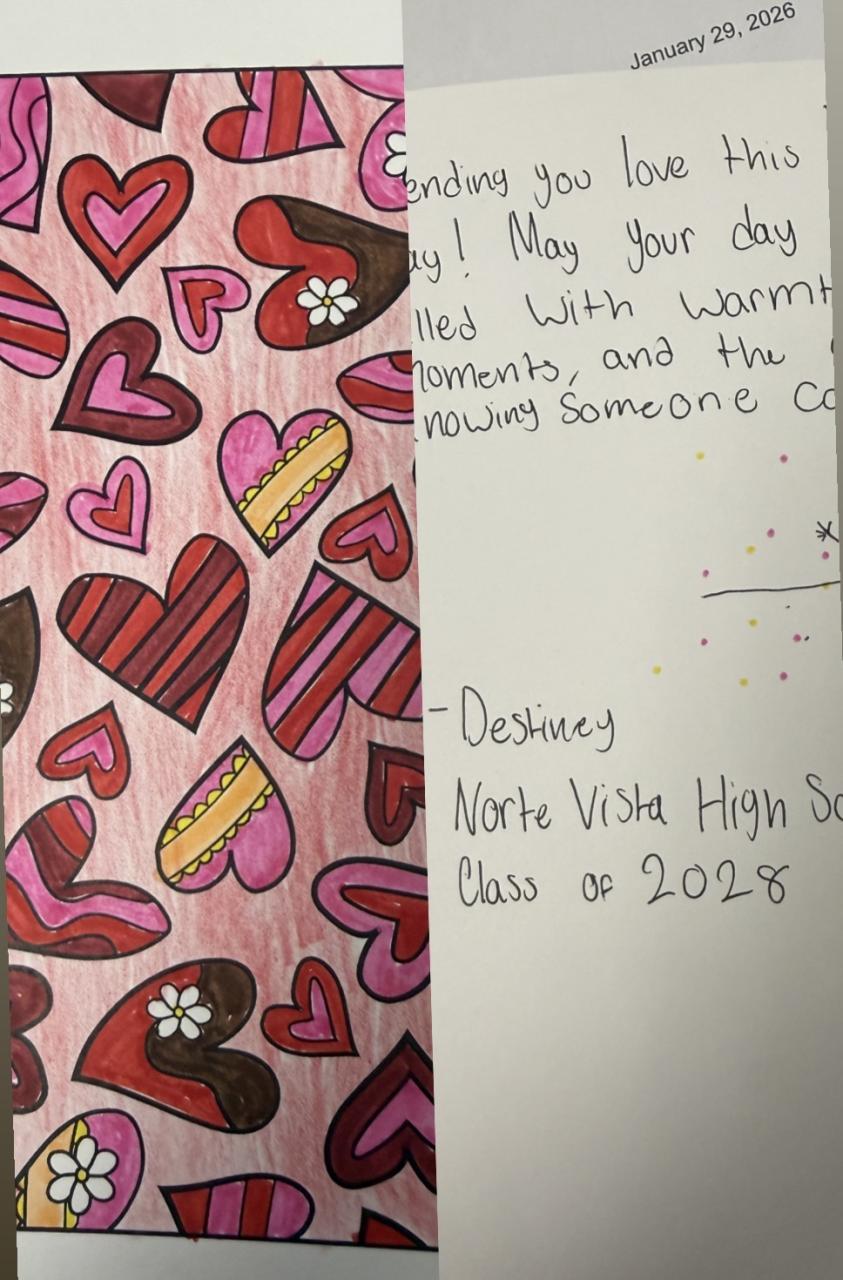 January 29, 2026
ending you love this
ay! May your day
lled with warmt
oments, and the
nowing someone co
- Destiney
Norte Vista High Sc
Class of 2028